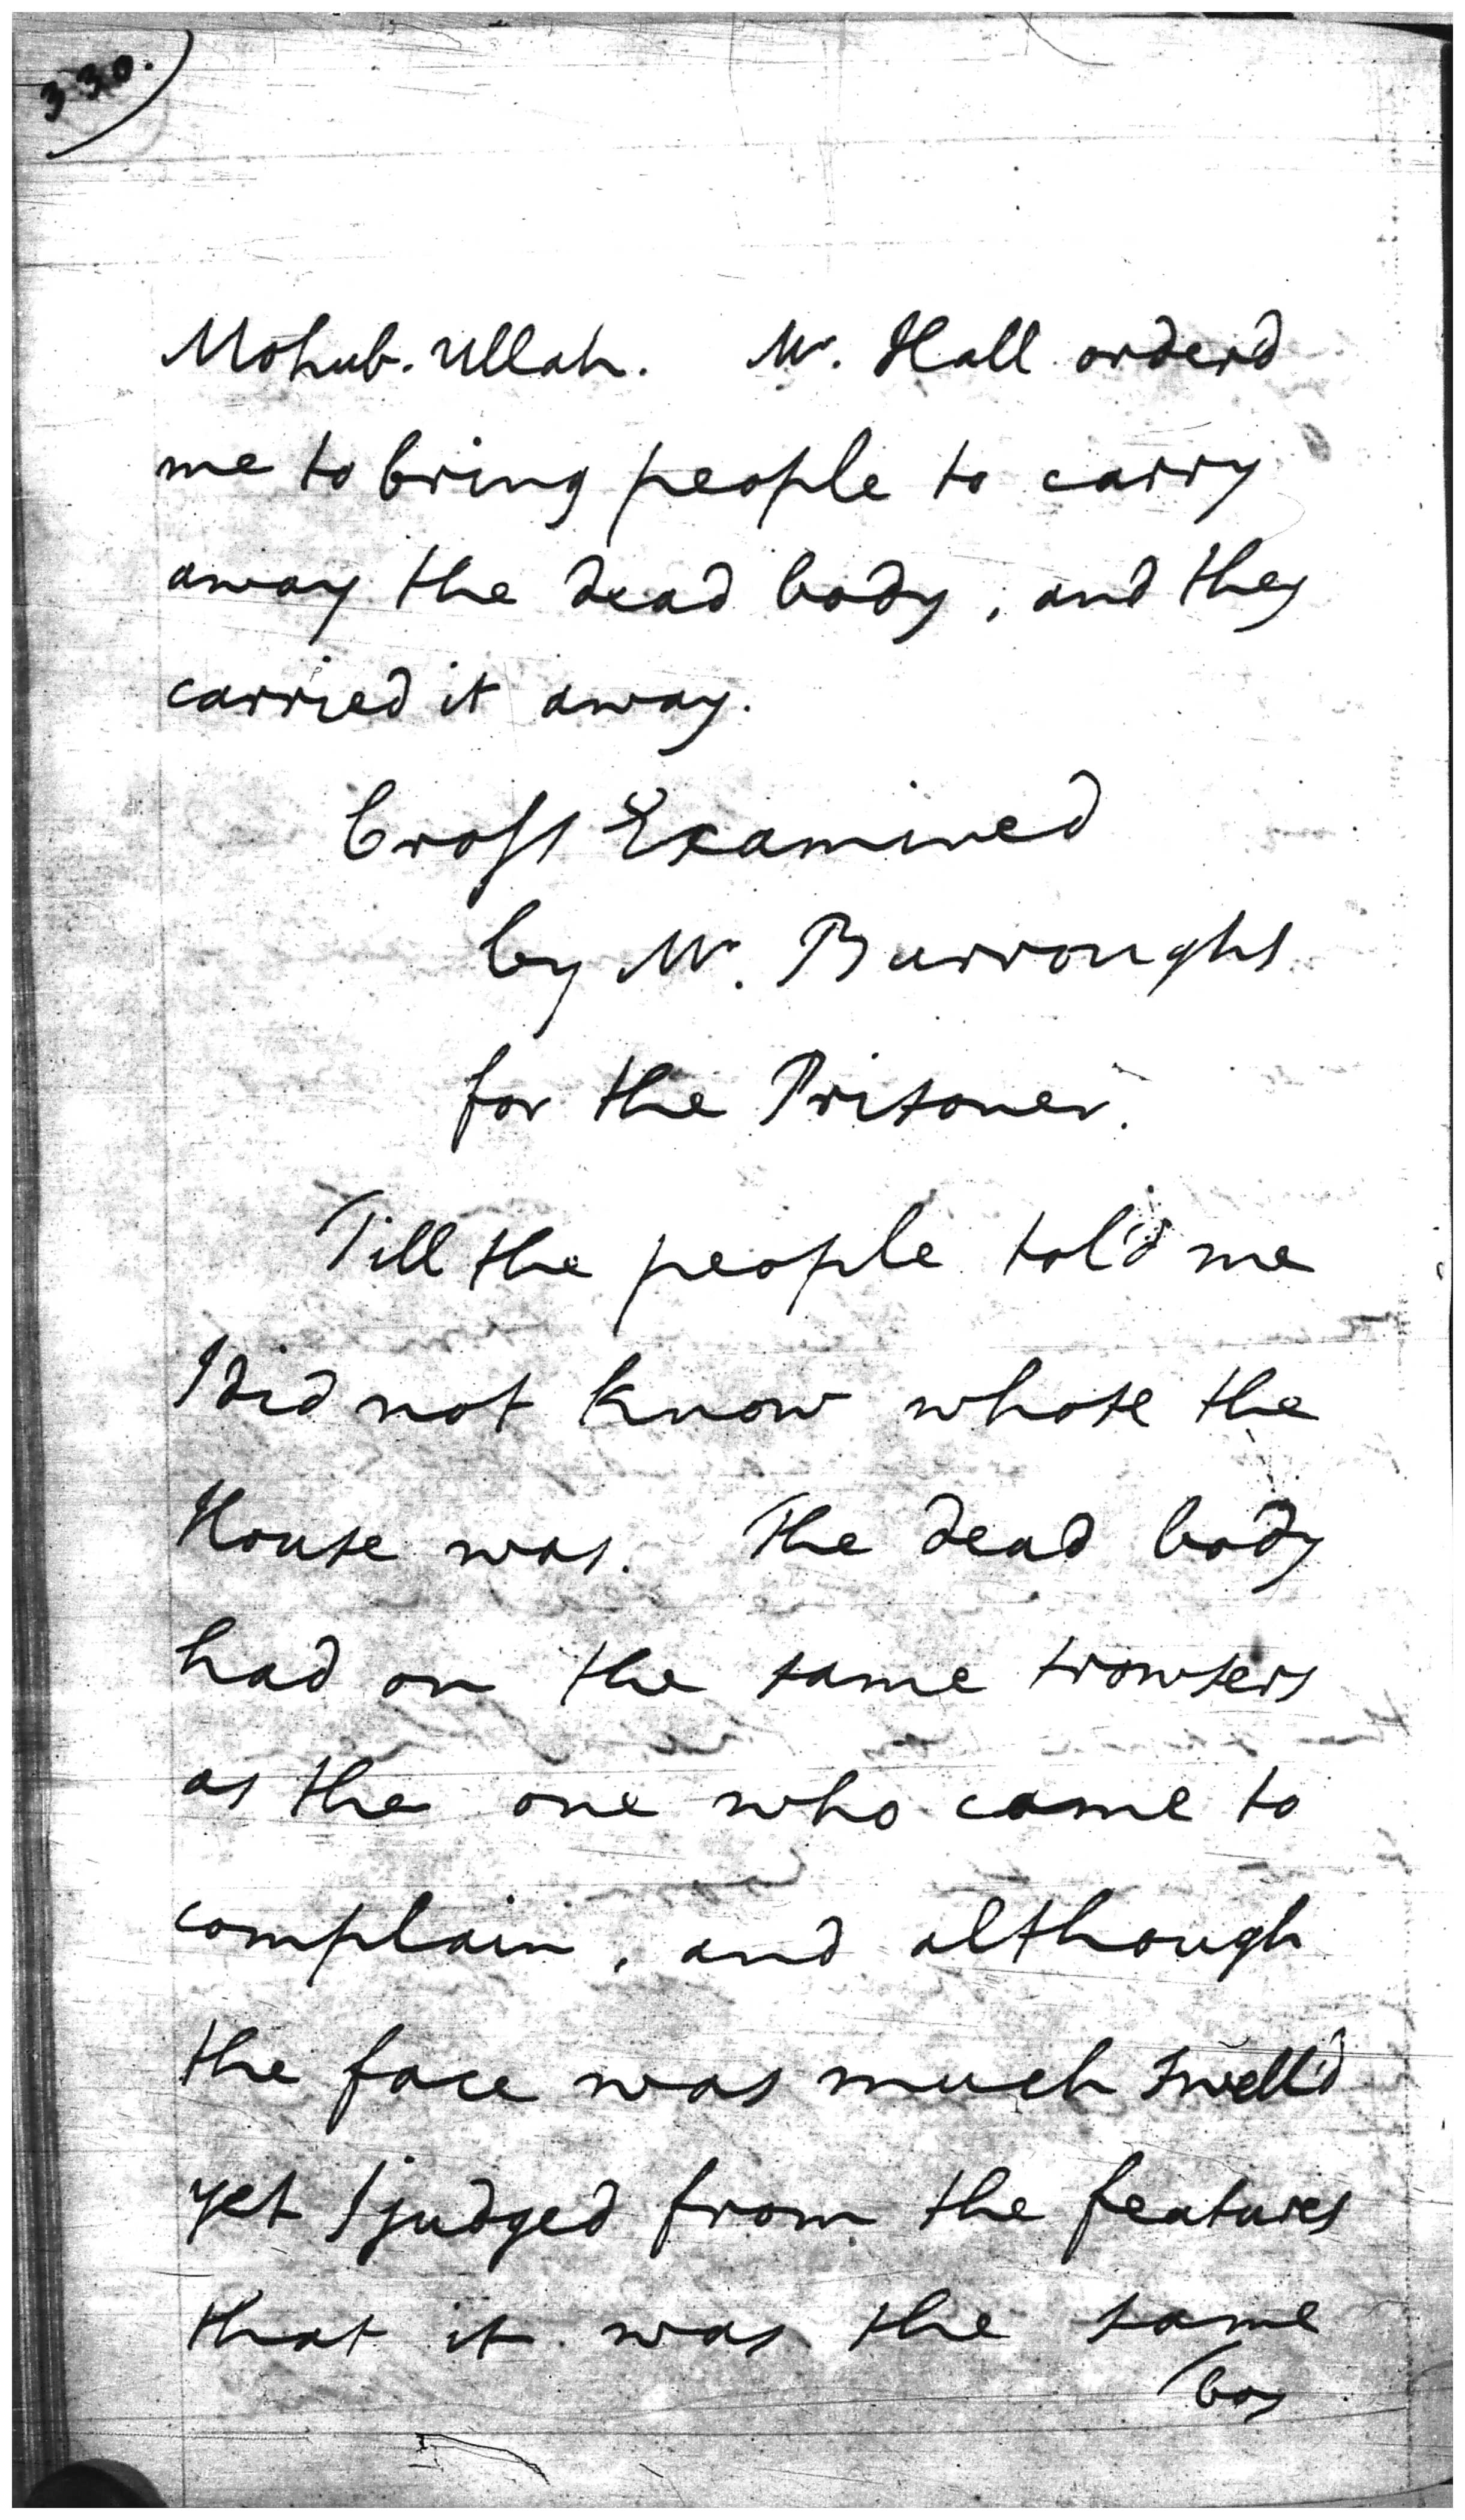 330.
Mohub. Ullah. Mr. Hall orderd
me to bring people to carry
away the dead body, and they
carried it away.
Cross Examined
by Mr. Burroughs
for the Prisoner.
Till the people tol'd me
I did not know whose the
House was. The dead body
had on the same trowsers
as the one who came to
complain, and although
the face was much swell'd
yet I judged from the features
that it was the same
boy